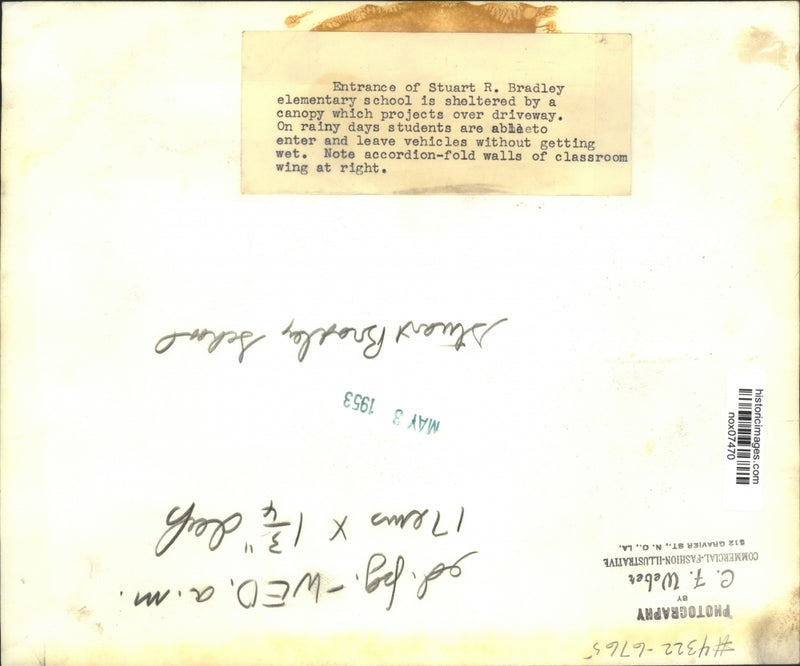 Entrance of Stuart R. Bradley
elementary school is sheltered by a
canopy which projects over driveway.
On rainy days students are ablaeto
enter and leave vehicles without getting
wet.  Note accordion-fold walls of classroom
wing at right.
Stuart Bradley School
MAY 3 1953
17 ems X 1 3/4" deep
ed. pg. - WED. a.m.
historicimages.com
nox07470
#4322-6765
PHOTOGRAPHY
BY
C. F. Weber
COMMERCIAL-FASHION-ILLUSTRATIVE
612 GRAVIER ST., N. O., LA.